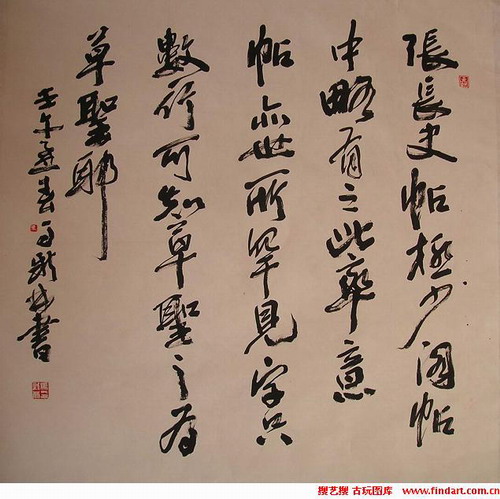 張長史帖極少閣帖
中略有之此率意
帖亦世所罕見字只
數行可知草聖之為
草聖耶
壬午孟春馬新林書
搜艺搜 古玩图库 www.findart.com.cn